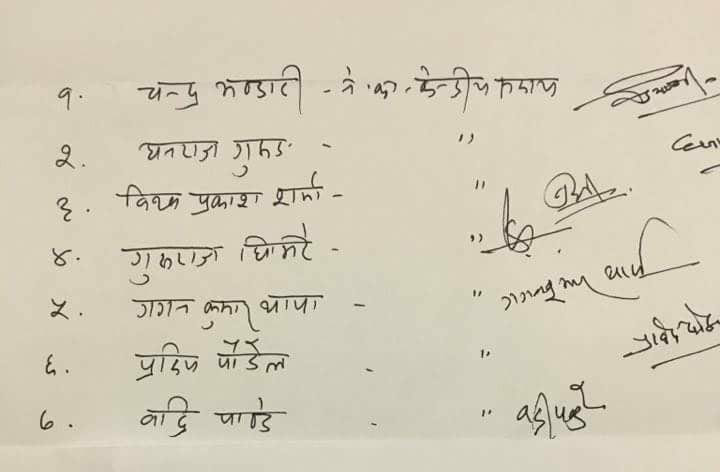 १. चन्द्र भण्डारी - ने.का. केन्द्रीय सदस्य
२. धनराज गुरुङ - "
३. विश्व प्रकाश शर्मा - "
४. गुरुराज घिमिरे - "
५. गगन कुमार थापा - " गगनकुमार थापा
६. प्रदिप पौडेल - "
७. बद्रि पाण्डे - "